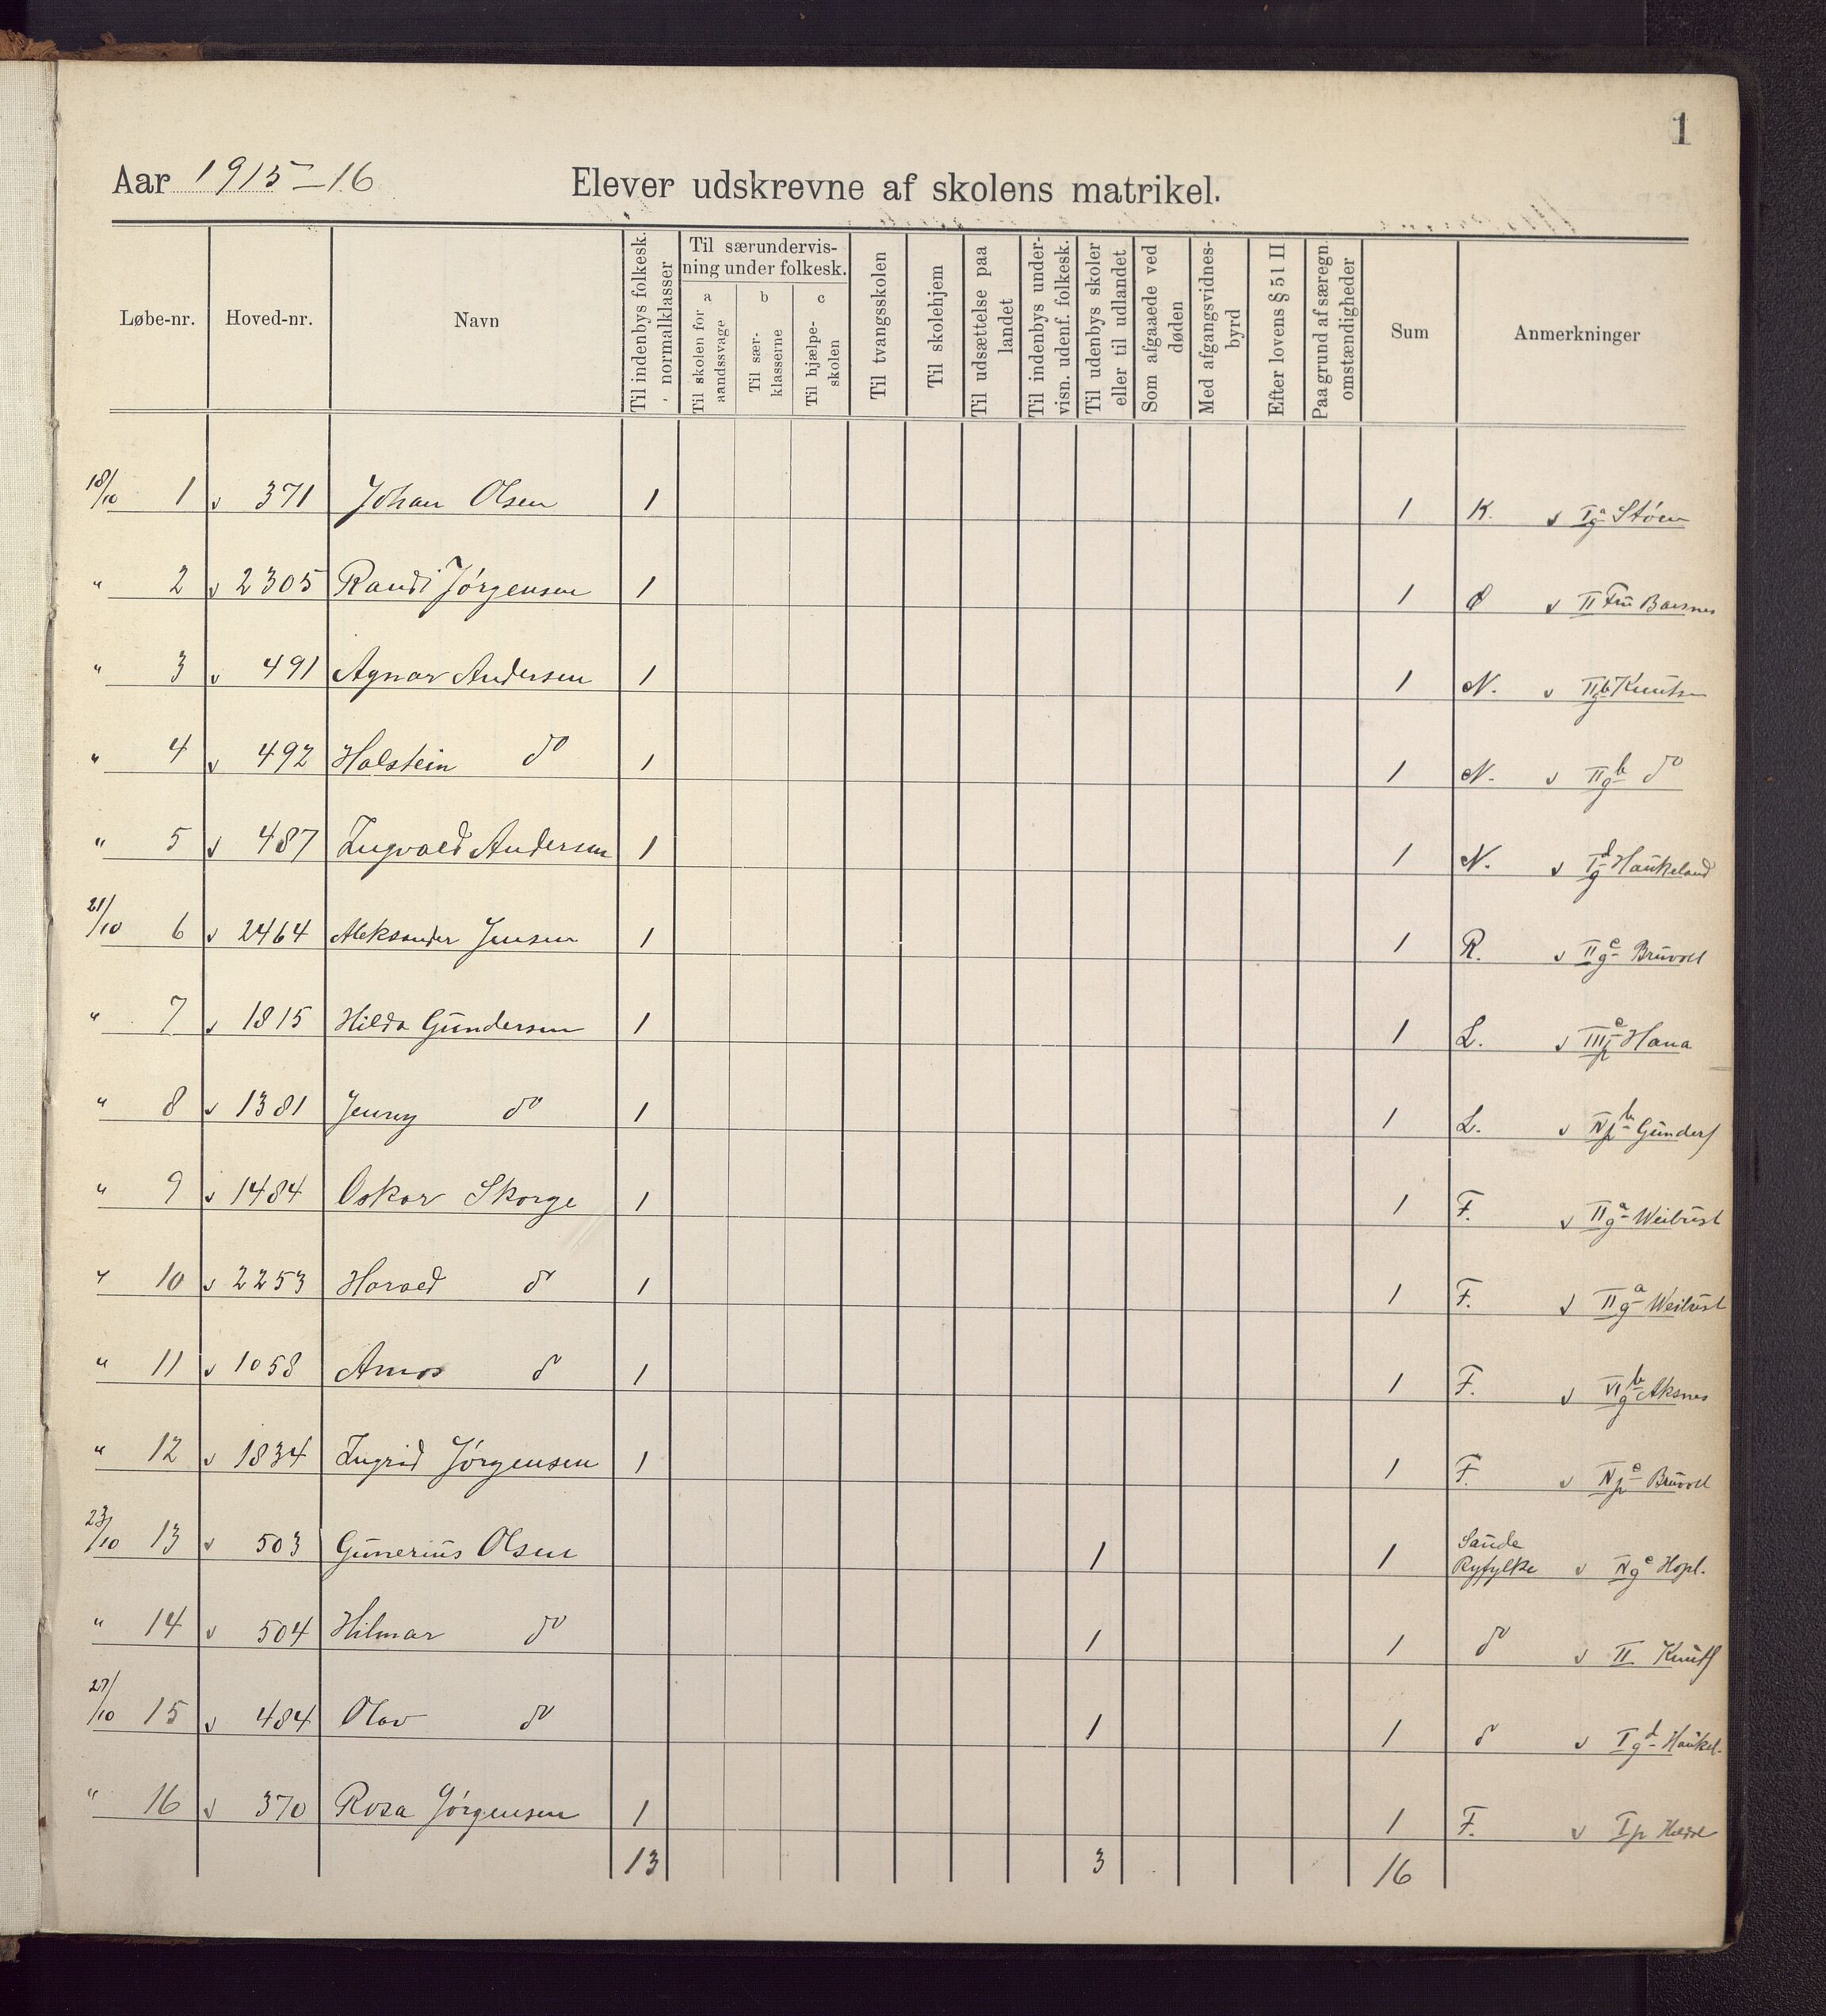 1
Aar 1915-16 Elever udskrevne af skolens matrikel.
Løbe-nr. Hoved-nr. Navn Til indenbys folkesk. normalklasser Til særundervisning under folkesk. a Til skolen for aandssvage b Til særklasserne c Til hjælpeskolen Til tvangsskolen Til skolehjem Til udsættelse paa landet Til indenbys undervisn. udenf. folkesk. Til udenbys skoler eller til udlandet Som afgaaede ved døden Med afgangsvidnesbyrd Efter lovens § 51 II Paa grund af særegn. omstændigheder Sum Anmerkninger
18/10 1 v 371 Johan Olsen 1 1 K. v Ig a Stöen
" 2 v 2305 Randi Jörgensen 1 1 d v II Frü Barsnes
" 3 v 491 Agnar Andersen 1 1 N. v IIg b Knüts
" 4 v 492 Halstein do 1 1 N. v IIg b do
" 5 v 487 Ingvald Andersen 1 1 N. v Ig d Haükeland
21/10 6 v 2464 Aleksander Jensen 1 1 R. v IIg c Brüvold
" 7 v 1815 Hilda Gündersen 1 1 L. v IIIp c Hana
" 8 v 1381 Jenny do 1 1 L. v IVp b Günders
" 9 v 1484 Oskar Skorge 1 1 F. v IIg a Weibüst
" 10 v 2253 Harald do 1 1 F. v IIg a Weibüst
" 11 v 1058 Amos do 1 1 F. v VIg b Aksnes
" 12 v 1834 Ingrid Jörgensen 1 1 F. v IVp c Brüvold
23/10 13 v 503 Günerius Olsen 1 1 Saüda Ryfylke v IVg c Hopl.
" 14 v 504 Hilmar do 1 1 do v II Knüts
27/10 15 v 484 Olav do 1 1 do v Ig d Haükel.
" 16 v 370 Rosa Jörgensen 1 1 F. v Ip
13 3 16